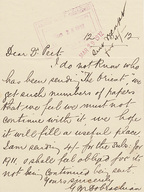 12 Feb / 12
Dear Dr Peet
I do not know who
has been sending "The Orient" we
get such numbers of papers
that we feel we must not
continue with it we hope
it will fill a useful place
I am sending 4/- for the Subs. for
1911 & shall be obliged for it
not being continued by post
Yours sincerely